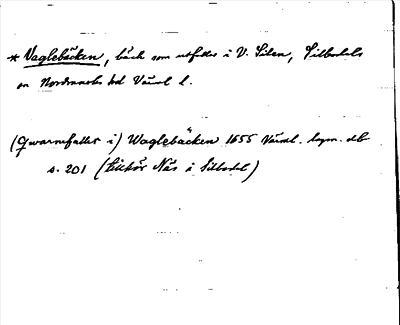 * Vaglebäcken, bäck som utfaller i V. Silen, Silbodals
sn Nordmarks hd Värml l.
(Qwarnefallet i) Waglebäcken 1655 Värml. hym. db
s. 201 (Lilltör Näs i Silbodal)